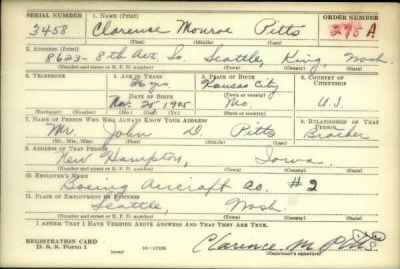 SERIAL NUMBER 1. NAME (Print) ORDER NUMBER
3458 Clarence Monroe Pitts 295 A
(First) (Middle) (Last)
2. ADDRESS (Print)
8623-8th Ave. So. Seattle, King, Wash.
(Number and street or R. F. D. number) (Town) (County) (State)
3. TELEPHONE 4. AGE IN YEARS 5. PLACE OF BIRTH 6. COUNTRY OF CITIZENSHIP
36 yrs Kansas City
DATE OF BIRTH (Town or county)
Nov. 25 1905 Mo. U.S.
(Mo.) (Day) (Yr.) (State or country)
7. NAME OF PERSON WHO WILL ALWAYS KNOW YOUR ADDRESS 8. RELATIONSHIP OF THAT PERSON
Mr. John D. Pitts Brother
(Mr., Mrs., Miss) (First) (Middle) (Last)
9. ADDRESS OF THAT PERSON
New Hampton, Iowa
(Number and street or R. F. D. number) (Town) (County) (State)
10. EMPLOYER'S NAME
Boeing Aircraft Co. #2
11. PLACE OF EMPLOYMENT OR BUSINESS
Seattle, Wash.
(Number and street or R. F. D. number) (Town) (County) (State)
I AFFIRM THAT I HAVE VERIFIED ABOVE ANSWERS AND THAT THEY ARE TRUE.
REGISTRATION CARD
D. S. S. Form 1 16-17105 Clarence M Pitts
(Registrant's signature)